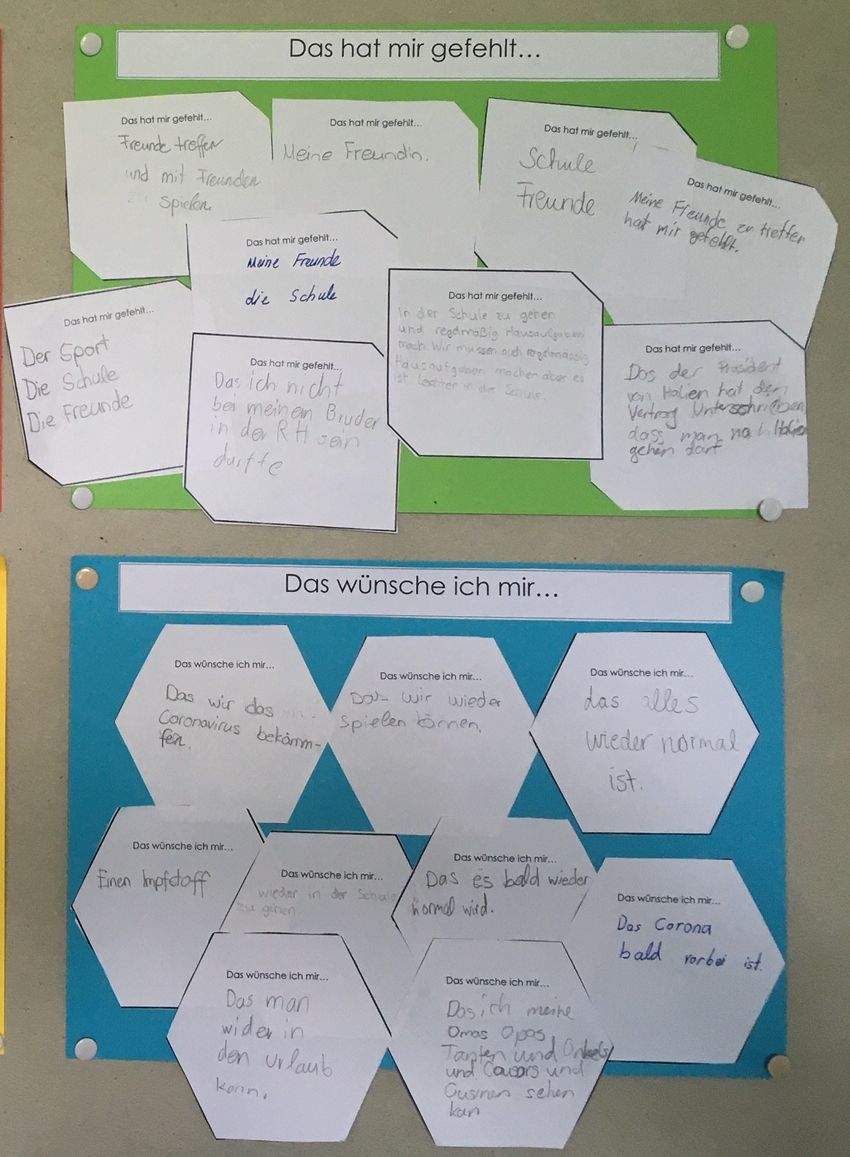 Das hat mir gefehlt...
Das hat mir gefehlt...
Freunde treffen
und mit Freunden
Spielen
Das hat mir gefehlt...
Meine Freundin.
Das hat mir gefehlt...
Schule
Freunde
Das hat mir gefehlt...
Meine Freunde zu treffen
hat mir gefehlt.
Das hat mir gefehlt...
Meine Freunde
die Schule
Das hat mir gefehlt...
Der Sport
Die Schule
Die Freunde
Das hat mir gefehlt...
Das ich nicht
bei meinem Bruder
in der RH sein
durfte
Das hat mir gefehlt...
In der Schule zu gehen
und regelmäßig Hausaufgaben
mach. Wir müssen auch regelmässig
Hausaufgaben machen aber es
ist leichter in der Schule.
Das hat mir gefehlt...
Das der Präsident
von Italien hat den
Vertrag Unterschrieben
dass man nach Italien
gehen darf
Das wünsche ich mir...
Das wünsche ich mir...
Das wir das
Coronavirus bekämm-
fen.
Das wünsche ich mir...
Das wir wieder
spielen können.
Das wünsche ich mir...
das alles
wieder normal
ist.
Das wünsche ich mir...
Einen Impfstoff
Das wünsche ich mir...
wieder in der Schule
zu gehen
Das wünsche ich mir...
Das es bald wieder
normal wird.
Das wünsche ich mir...
Das Corona
bald vorbei ist.
Das wünsche ich mir...
Das man
wider in
den urlaub
kann.
Das wünsche ich mir...
Das ich meine
Omas Opas
Tanten und Onkels
und Cousars und
Cusinen sehen
kan